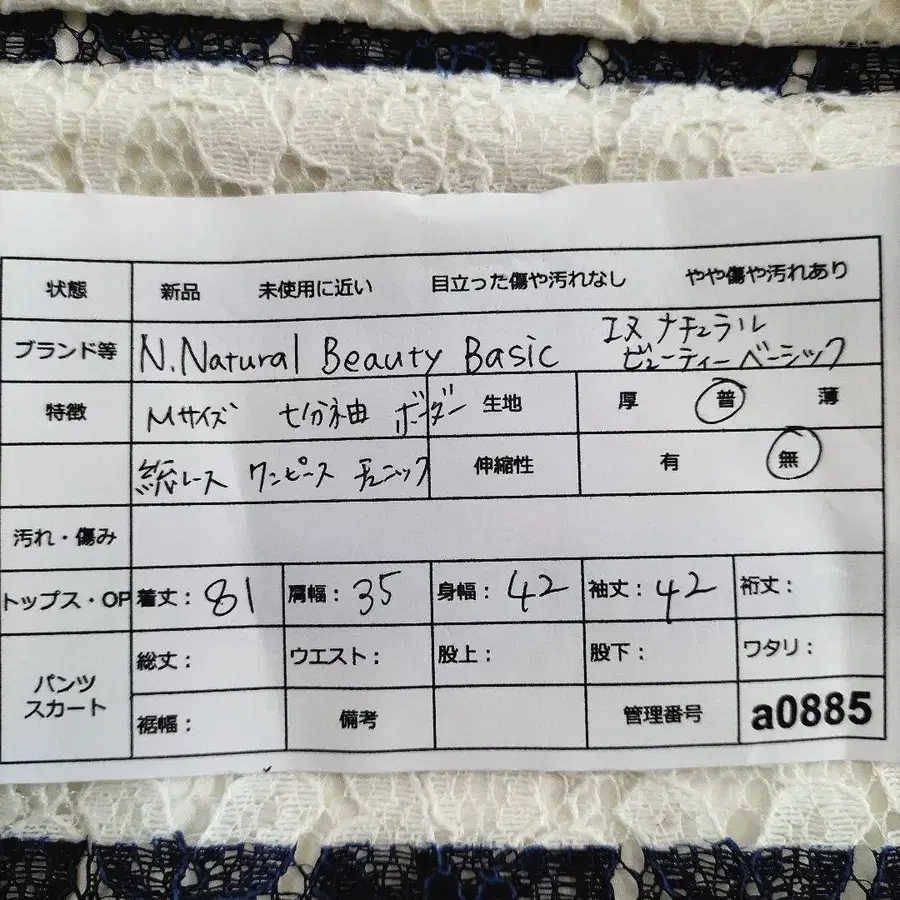 状態 新品 未使用に近い 目立った傷や汚れなし やや傷や汚れあり
ブランド等 N.Natural Beauty Basic エヌ ナチュラル
ビューティーベーシック
特徴 Mサイズ 七分袖 ボーダー 生地 厚 普 薄
総レース ワンピース チュニック 伸縮性 有 無
汚れ・傷み
トップス・OP 着丈: 81 肩幅: 35 身幅: 42 袖丈: 42 裄丈:
パンツ
スカート
総丈: ウエスト: 股上: 股下: ワタリ:
裾幅: 備考 管理番号 a0885